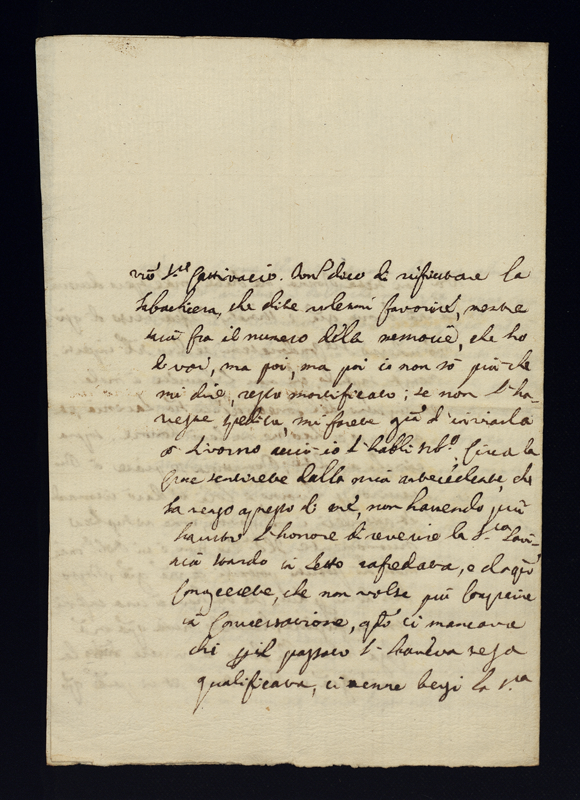 mio S.re Cattivacio. Non dico di rifiutare la
Tabachiera, che dite volermi favorire, mentre
sarà fra il numero delle memorie, che ho
di voi, ma poi, ma poi io non so più che
mi dire, resto mortificato; se non l'ha-
veste spedita, mi farete gra. d'inviarla
a Livorno acciò io l'habbi sub.o, Circa la
sentirete dalla mia antecedente, che
la tengo apresso di me, non havendo più
havuto l'honore di reverire la S.ra Lavi-
nia stando in letto rafredata, e da q.to
Conoscerete, che non volse più Comparire
in Conversatione, q.do ci mancava
chi p. il passato l'haveva resa
qualificata, ci venne bensì la S.ra